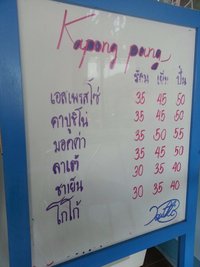 Kapong pang
ร้อน เย็น ปั่น
เอสเพรสโซ่ 35 45 50
คาปูชิโน่ 35 45 50
มอคค่า 35 50 55
ลาเต้ 35 45 50
ชาเย็น 30 35 40
โกโก้ 30 35 40